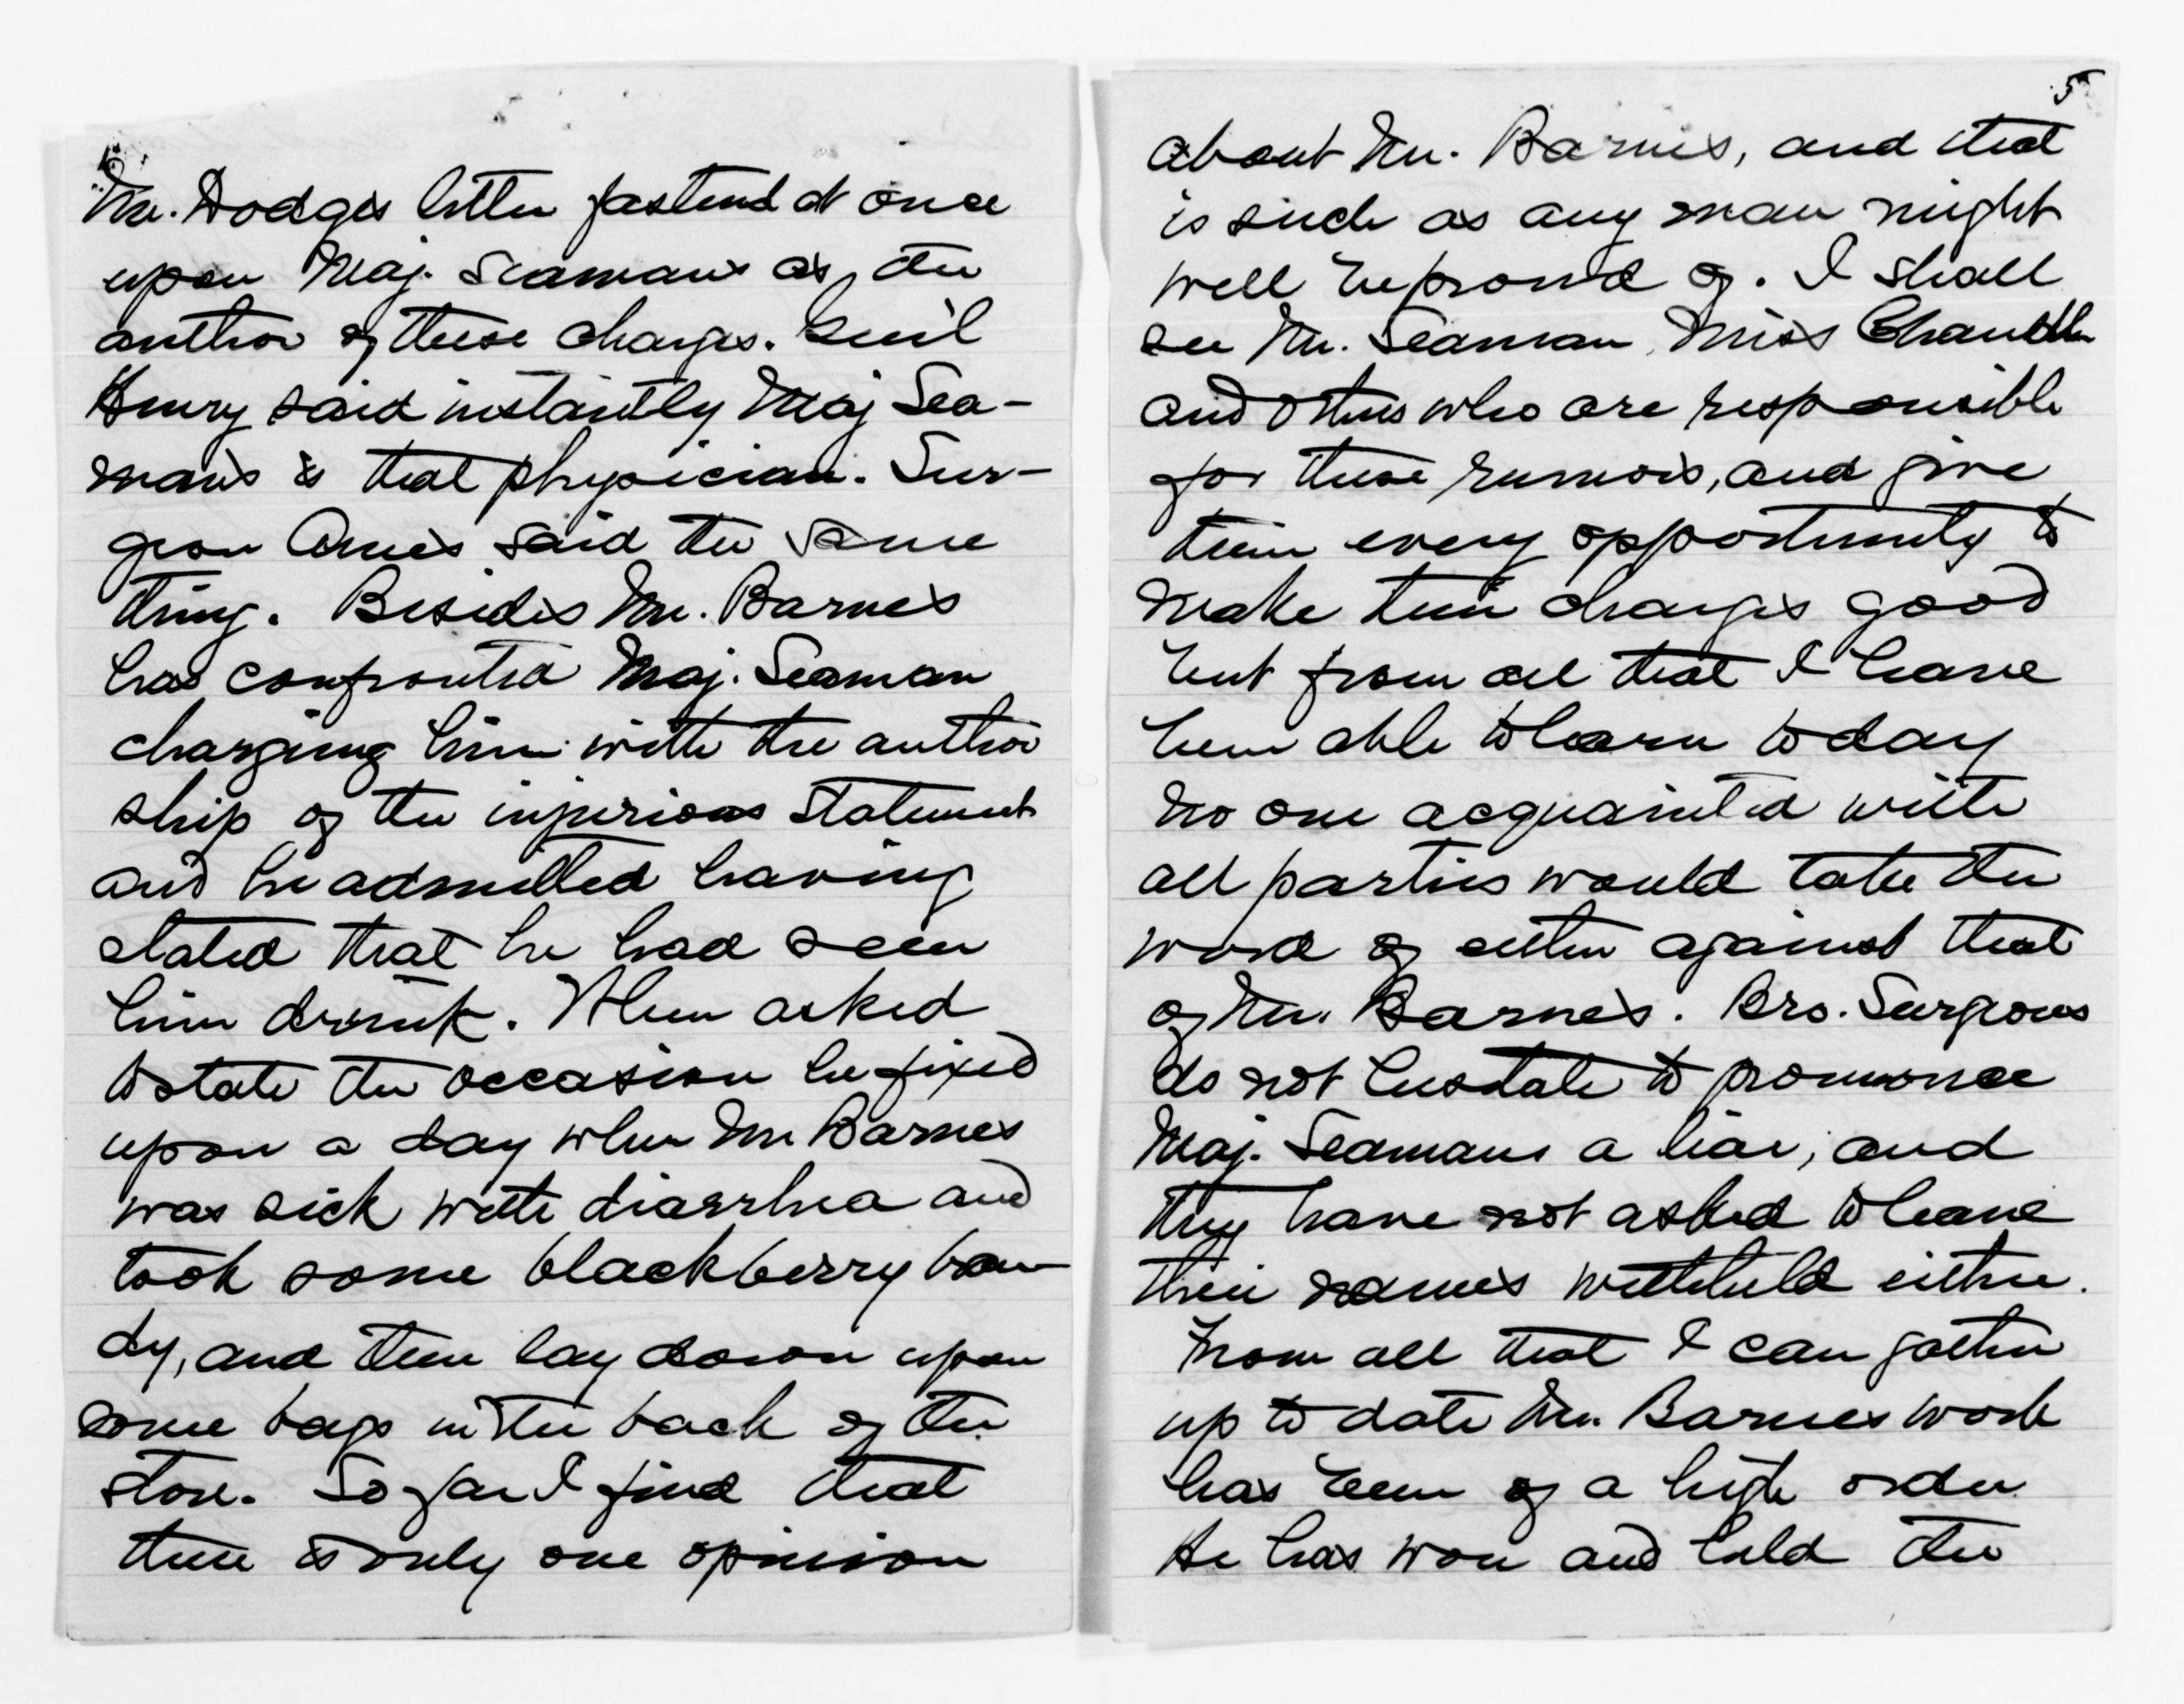 Mr. Dodges letter fastend at once
upon Maj. Seamans as the
author of these charges. Genl
Henry said instantly Maj Sea-
mans is that physician. Sur-
geon Ames said the same
thing. Besides Mr. Barnes
has confronted Maj. Seaman
charging him with the author
ship of the injurious statement
and he admitted having
stated that he had seen
him drunk. When asked
to state the occasion he fixed
upon a day when Mr Barnes
was sick with diarrhea and
took some blackberry bran
dy, and then lay down upon
some bags in the back of the
store. So far I find that
there is only one opinion
5
about Mr. Barnes, and that
is such as any man might
well be proud of. I shall
see Mr. Seaman, Miss Chandler
and others who are responsible
for these rumors, and give
them every opportunity to
make their charges good
but from all that I have
been able to learn today
no one acquainted with
all parties would take the
word of either against that
of Mr. Barnes. Bro. Surgeons
do not hesitate to pronounce
Maj. Seamans a liar, and
they have not asked to have
their names withheld either.
From all that I can gather
up to date Mr. Barnes work
has been of a high order
He has won and held the